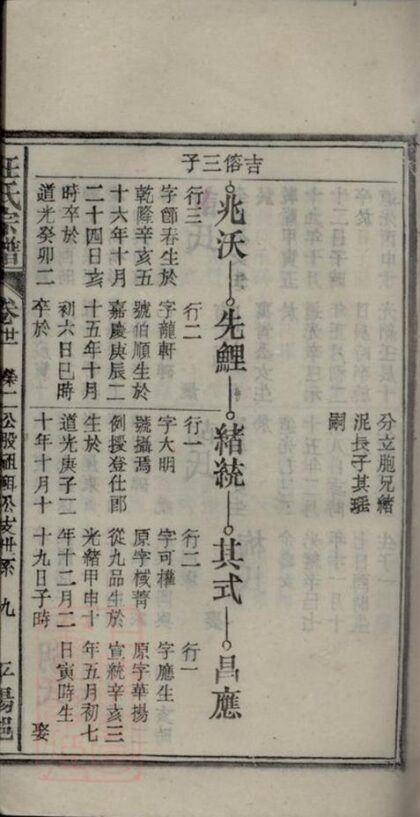 分立胞兄緒
泥長子其瑶
嗣
吉傛三子
兆沃
行三
字節春生於
乾隆辛亥五
十六年十月
二十四日亥
時卒於
道光癸卯二
先鯉
行二
字龍軒
號伯順生於
嘉慶庚辰二
十五年十月
初六日巳時
卒於
緒統
行一
字大明
號攝焉
例授登仕郎
生於
道光庚子二
十年十月十
其式
行二
字可權
原字棫菁
從九品生於
光緒甲申十
年十二月二
十九日子時
昌應
行一
字應生
原字華揚
宣統辛亥三
年五月初七
日寅時生
娶
氏宗譜
卷 榮二公股 公支世系 九
平陽邑